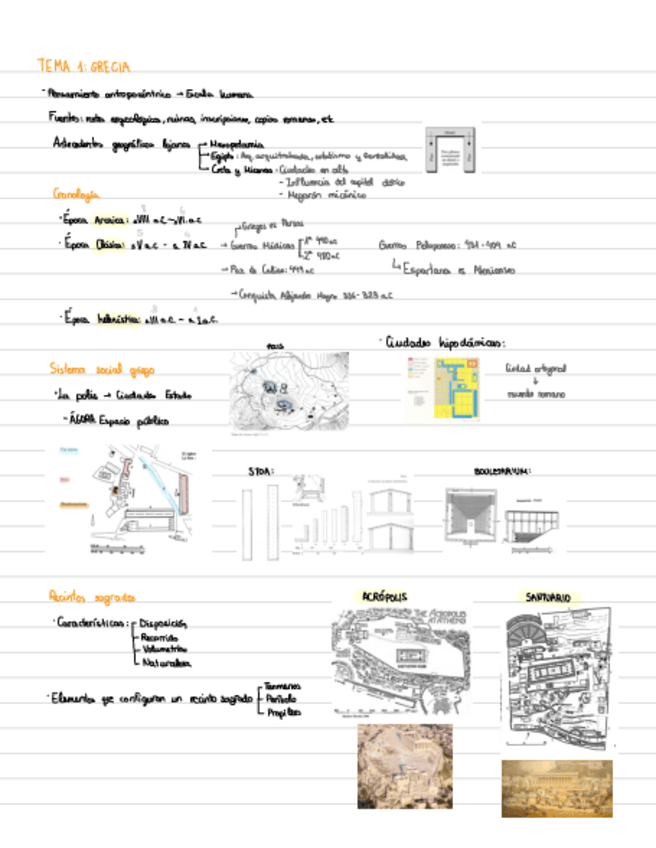 TEMA 1: GRECIA
· Pensamiento antropocéntrico → Escala humana
Fuentes: restos arqueológicos, ruinas, inscripciones, copias romanas, etc
Antecedentes geográficos lejanos
Mesopotamia
Egipto: Arq. arquitrabada,
Creta y Micenas: Ciudades en alto
- Influencia del capitel dórico
- Megarón micénico
Cronología
· Época Arcaica: s VIII a.C - s VI a.C
· Época Clásica: s V a.C - s IV a.C
Griegos vs Persas
→ Guerras Médicas
1ª 490 a.C
2ª 480 a.C
→ Paz de Calias: 449 a.C
→ Conquista Alejandro Magno 336-323 a.C
Guerras Peloponeso: 431-404 a.C
Espartanos vs Atenienses
· Época helenística: s III a.C - s I a.C.
Sistema social griego
· La polis → Ciudades Estado
- ÁGORA Espacio público
· Ciudades hipodámicas:
Ciudad ortogonal
↓
mundo romano
STOA:
BOULETERIUM:
Recintos sagrados
· Características:
- Disposición
- Recorrido
- Volumetría
- Naturaleza
· Elementos que configuran un recinto sagrado
Temmenos
Períbolo
Propileos
ACRÓPOLIS
THE ACROPOLIS
AT ATHENS
SANTUARIO